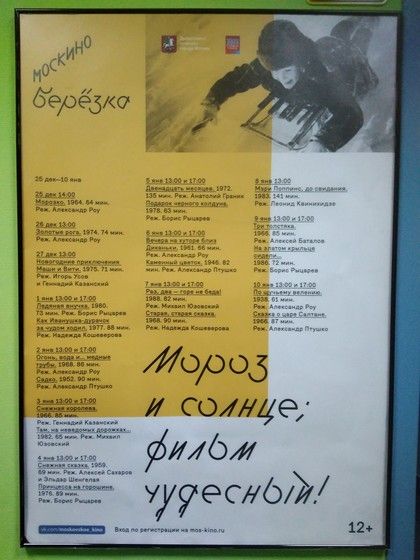 МОСКИНО
берёзка
25 дек—10 янв
25 дек 14:00
Морозко, 1964, 84 мин.
Реж. Александр Роу
26 дек 13:00
Золотые рога, 1974, 74 мин.
Реж. Александр Роу
27 дек 13:00
Новогодние приключения
Маши и Вити, 1975, 71 мин.
Реж. Игорь Усов
и Геннадий Казанский
1 янв 13:00 и 17:00
Ледяная внучка, 1980,
73 мин. Реж. Борис Рыцарев
Как Иванушка-дурачок
за чудом ходил, 1977, 88 мин.
Реж. Надежда Кошеверова
2 янв 13:00 и 17:00
Огонь, вода и... медные
трубы, 1968, 86 мин.
Реж. Александр Роу
Садко, 1952, 90 мин.
Реж. Александр Птушко
3 янв 13:00 и 17:00
Снежная королева,
1966, 85 мин.
Реж. Геннадий Казанский
Там, на неведомых дорожках...
1982, 65 мин. Реж. Михаил
Юзовский
4 янв 13:00 и 17:00
Снежная сказка, 1959,
69 мин. Реж. Алексей Сахаров
и Эльдар Шенгелая
Принцесса на горошине,
1976, 89 мин.
Реж. Борис Рыцарев
5 янв 13:00 и 17:00
Двенадцать месяцев, 1972,
135 мин. Реж. Анатолий Граник
Подарок черного колдуна,
1978, 63 мин.
Реж. Борис Рыцарев
6 янв 13:00 и 17:00
Вечера на хуторе близ
Диканьки, 1961, 66 мин.
Реж. Александр Роу
Каменный цветок, 1946, 82
мин. Реж. Александр Птушко
7 янв 13:00 и 17:00
Раз, два — горе не беда!
1988, 82 мин.
Реж. Михаил Юзовский
Старая, старая сказка,
1968, 90 мин.
Реж. Надежда Кошеверова
8 янв 13:00
Мэри Поппинс, до свидания,
1983, 141 мин.
Реж. Леонид Квинихидзе
9 янв 13:00 и 17:00
Три толстяка,
1966, 85 мин.
Реж. Алексей Баталов
На златом крыльце
сидели...
1986, 72 мин.
Реж. Борис Рыцарев
10 янв 13:00 и 17:00
По щучьему велению,
1938, 61 мин.
Реж. Александр Роу
Сказка о царе Салтане,
1966, 87 мин.
Реж. Александр Птушко
Мороз
и солнце;
фильм
чудесный!
vk.com/moskovskoe_kino
Вход по регистрации на mos-kino.ru
12+